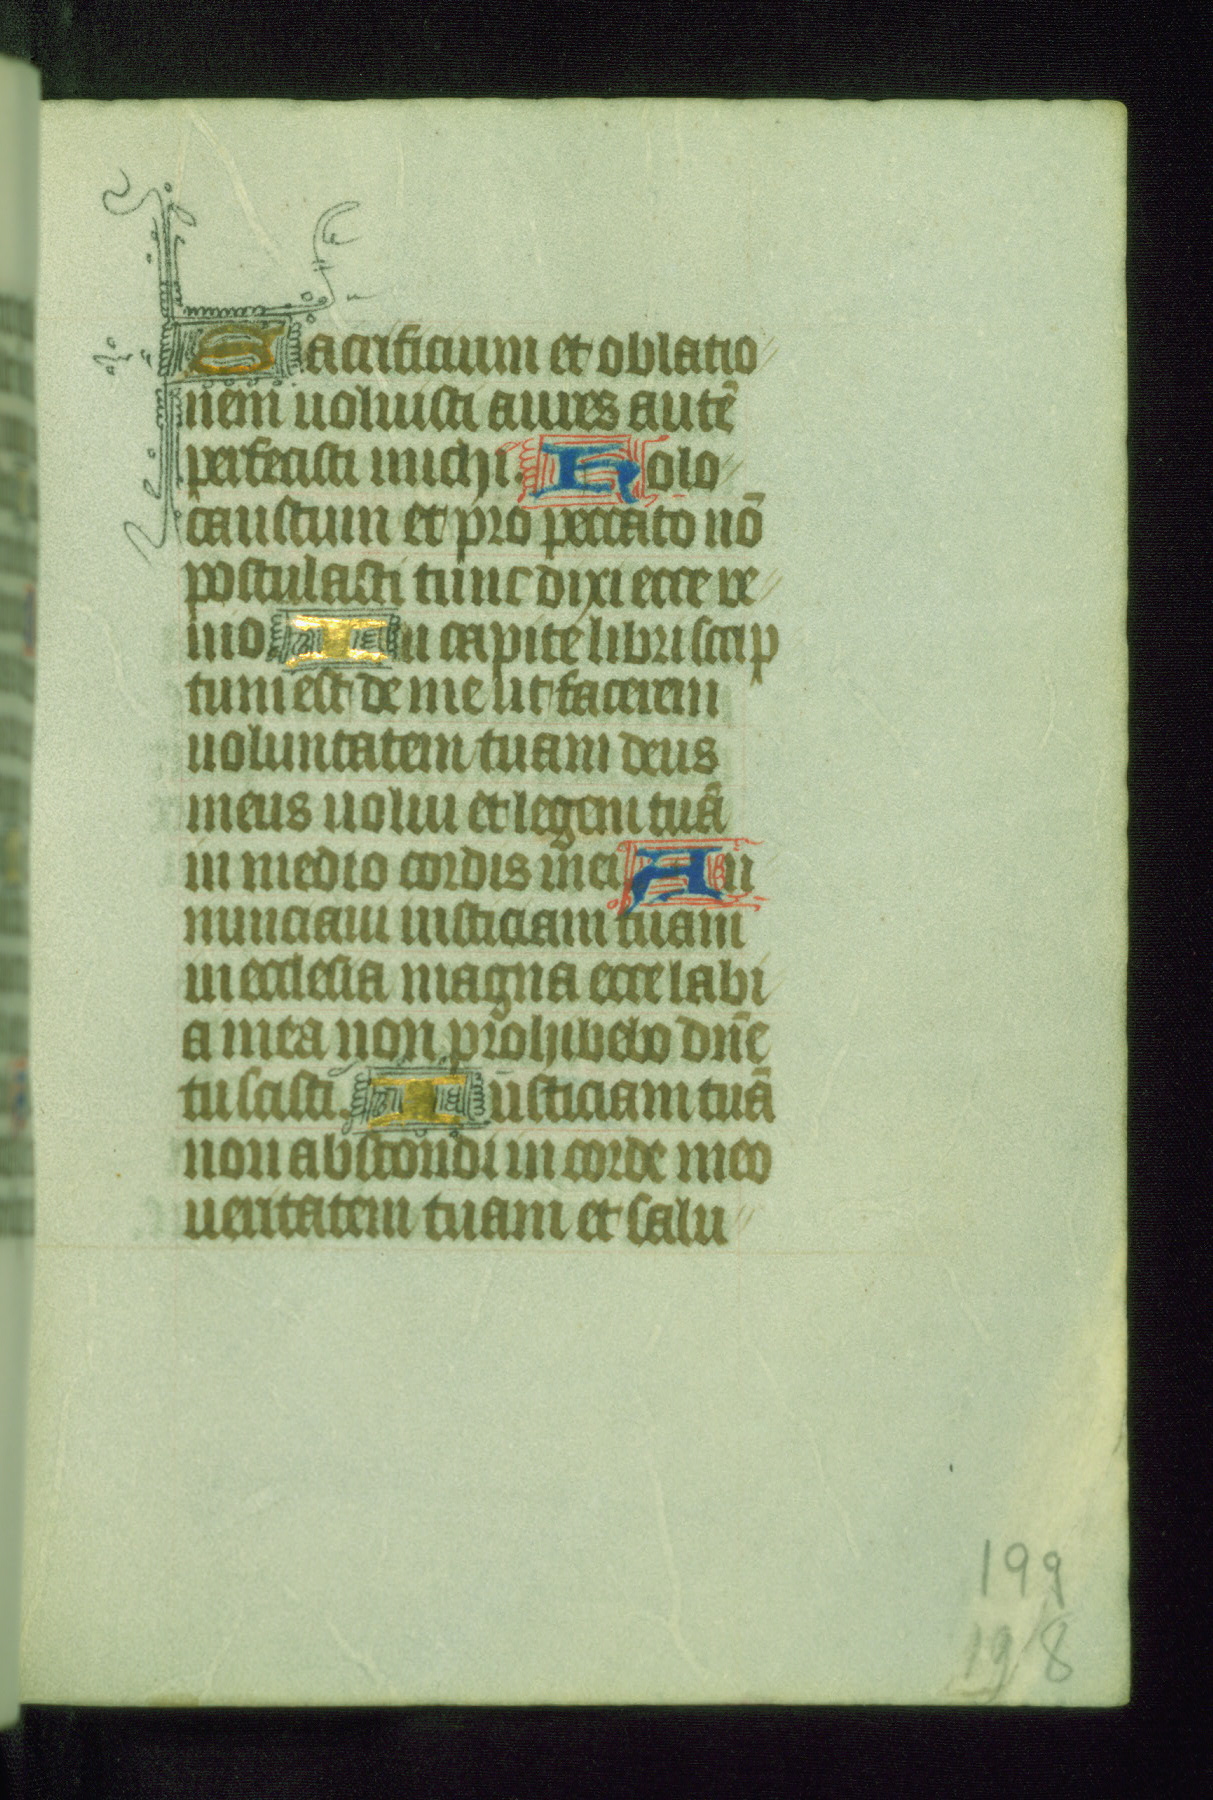 Sacrificium et oblatio
nem uoluisti aures autē
perfecisti michi. Holo
caustum et pro peccato nō
postulasti tunc dixi ecce ve
nio In capite libri scrip
tum est de me ut facerem
uoluntatem tuam deus
meus uolui et legem tuā
in medio cordis mei An
nunciaui iusticiam tuam
in ecclesia magna ecce labi
a mea non prohibebo dn̄e
tu scisti. Iusticiam tuā
non abscondi in corde meo
ueritatem tuam et salu
199
198